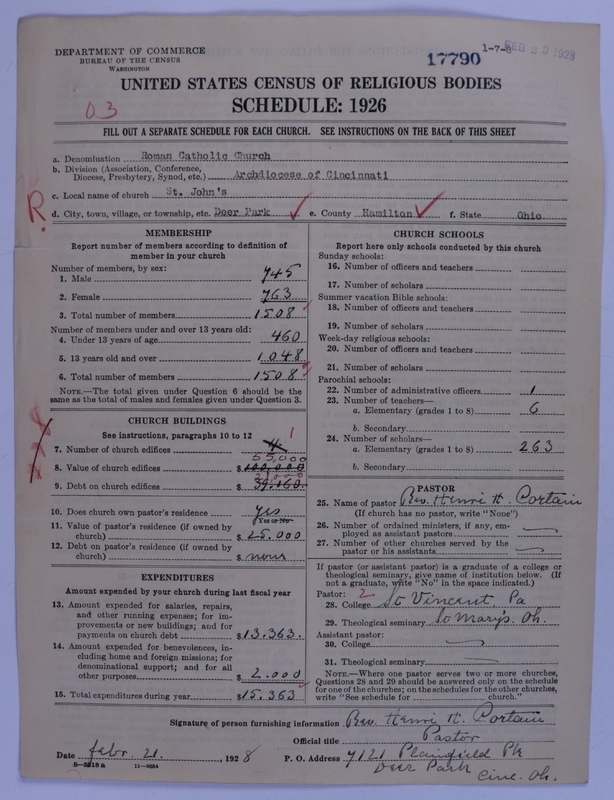 DEPARTMENT OF COMMERCE
BUREAU OF THE CENSUS
WASHINGTON
17790
1-7-8
FEB 29 1928
UNITED STATES CENSUS OF RELIGIOUS BODIES
SCHEDULE: 1926
03
FILL OUT A SEPARATE SCHEDULE FOR EACH CHURCH. SEE INSTRUCTIONS ON THE BACK OF THIS SHEET
a. Denomination Roman Catholic Church
b. Division (Association, Conference, Diocese, Presbytery, Synod, etc.) Archdiocese of Cincinnati
c. Local name of church St. John's
R.
d. City, town, village, or township, etc. Deer Park e. County Hamilton f. State Ohio
MEMBERSHIP
Report number of members according to definition of
member in your church
Number of members, by sex:
1. Male 745
2. Female 763
3. Total number of members 1508
Number of members under and over 13 years old:
4. Under 13 years of age 460
5. 13 years old and over 1048
6. Total number of members 1508
NOTE.—The total given under Question 6 should be
same as the total of males and females given under Question 3.
CHURCH BUILDINGS
See instructions, paragraphs 10 to 12
7. Number of church edifices 4 1
55,000
8. Value of church edifices $100,000
9. Debt on church edifices $39.160.
10. Does church own pastor's residence yes
Yes or No
11. Value of pastor's residence (if owned by
church) $25.000
12. Debt on pastor's residence (if owned by
church) $none
EXPENDITURES
Amount expended by your church during last fiscal year
13. Amount expended for salaries, repairs,
and other running expenses; for im-
provements or new buildings; and for
payments on church debt $13.363.
14. Amount expended for benevolences, in-
cluding home and foreign missions; for
denominational support; and for all
other purposes $2.000
15. Total expenditures during year $15.363
CHURCH SCHOOLS
Report here only schools conducted by this church
Sunday schools:
16. Number of officers and teachers
17. Number of scholars
Summer vacation Bible schools:
18. Number of officers and teachers
19. Number of scholars
Week-day religious schools:
20. Number of officers and teachers
21. Number of scholars
Parochial schools:
22. Number of administrative officers 1
23. Number of teachers—
a. Elementary (grades 1 to 8) 6
b. Secondary
24. Number of scholars—
a. Elementary (grades 1 to 8) 263
b. Secondary
PASTOR
25. Name of pastor Rev. Henri H. Cortain
(If church has no pastor, write "None")
26. Number of ordained ministers, if any, em-
ployed as assistant pastors
27. Number of other churches served by the
pastor or his assistants
If pastor (or assistant pastor) is a graduate of a college or
theological seminary, give name of institution below. (If
not a graduate, write "No" in the space indicated.)
Pastor: 2
28. College St Vincent, Pa
29. Theological seminary St Mary's. Oh.
Assistant pastor:
30. College
31. Theological seminary
NOTE.—Where one pastor serves two or more churches,
Questions 28 and 29 should be answered only on the schedule
for one of the churches; on the schedules for the other churches,
write "See schedule for church."
Signature of person furnishing information Rev. Henri H. Cortain
Official title Pastor
Date febr. 21. , 1928 P. O. Address 7121 Plainfield Pk
Deer Park Cinc. Oh.
8—5218 a 11—9554